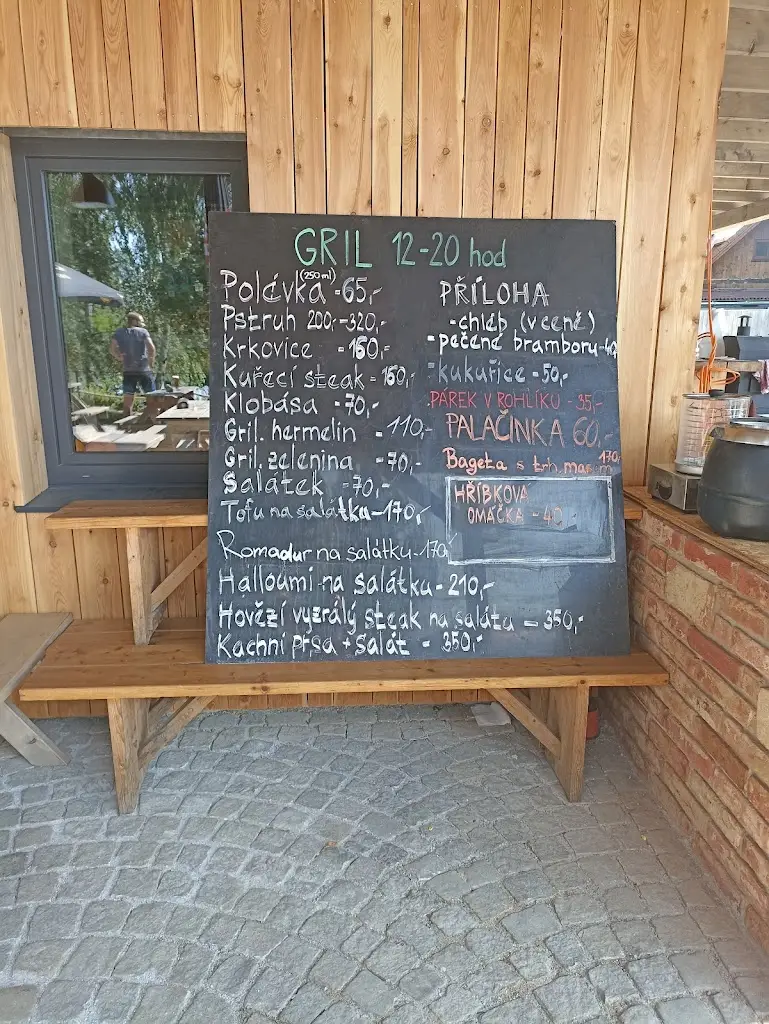 GRIL 12-20 hod
Polévka (250ml) - 65,-
Pstruh 200,--320,-
Krkovice - 160,-
Kuřecí steak - 160,-
Klobása - 70,-
Gril. hermelin - 110,-
Gril. zelenina - 70,-
Salátek - 70,-
Tofu na salátku - 170,-
Romadur na salátku - 170,-
Halloumi na salátku - 210,-
Hovězí vyzrálý steak na salátu - 350,-
Kachní prsa + Salát - 350,-
PŘÍLOHA
- chléb (v ceně)
- pečené brambory - 40
- kukuřice - 50,-
PÁREK V ROHLÍKU - 35,-
PALAČINKA 60,-
Bageta s trh. masem 170,-
HŘÍBKOVÁ
OMÁČKA - 40